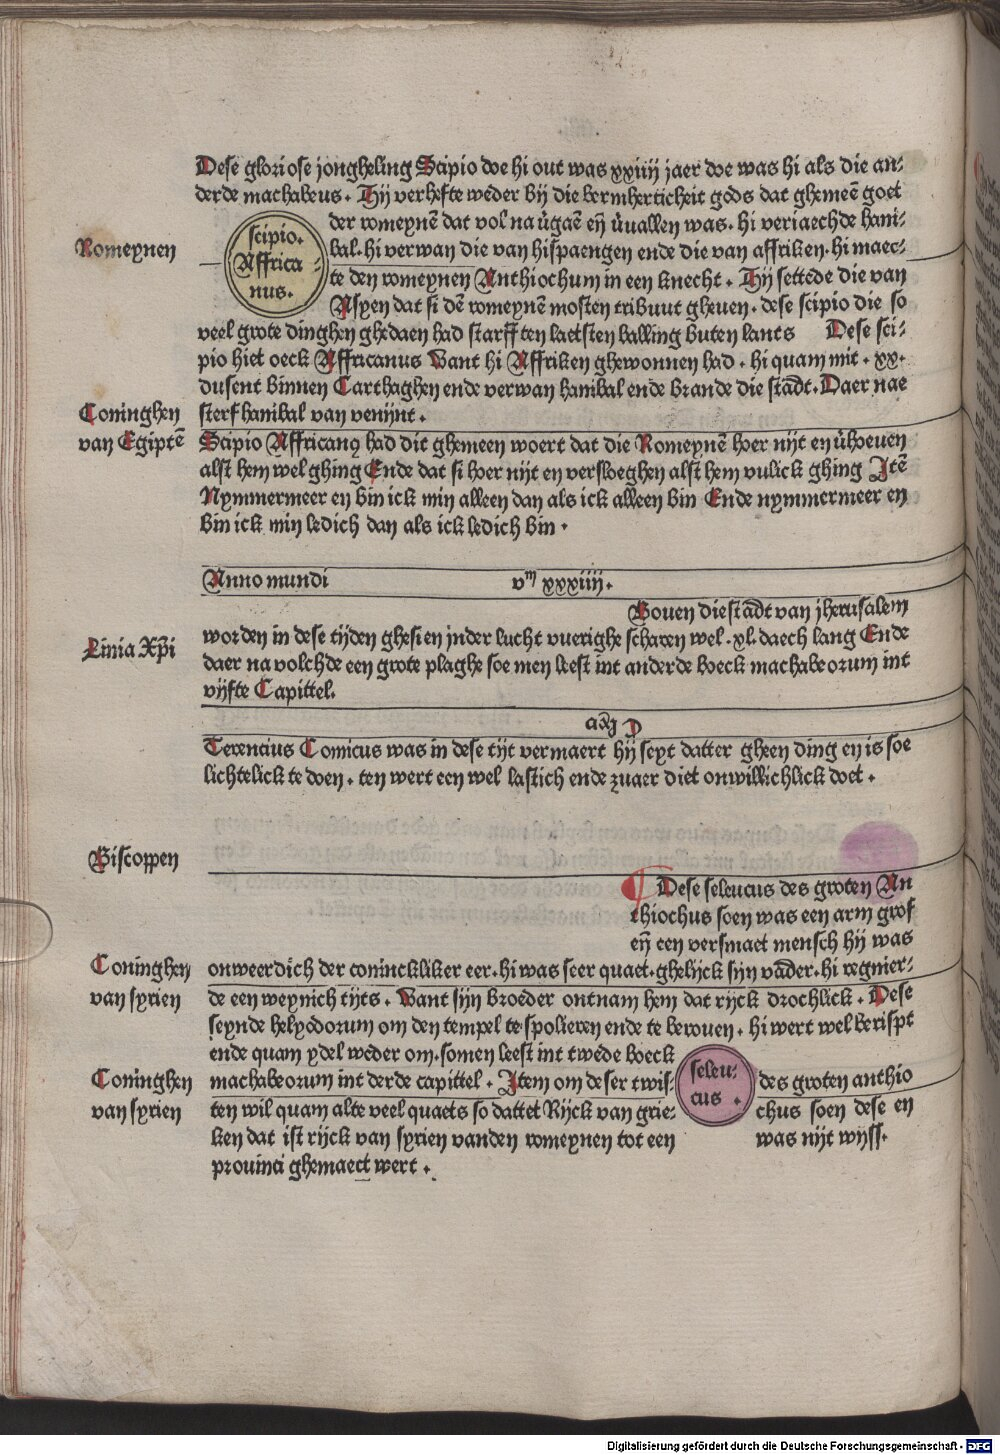 Dese gloriose jongheling Scipio doe hi out was xxiiij jaer doe was hi als die an⸗
derde machabeus. Hij verhefte weder bij die bermherticheit gods dat ghemeē goet
der romeynē dat vol na v̄gaē eñ v̄vallen was. hi veriaechde hani⸗
Romeynen
scipio.
Affrica⸗
nus.
bal. hi verwan die van hispaengen ende die van affriken. hi maec⸗
te den romeynen Anthiochum in een knecht. Hij settede die van
Asyen dat si dē romeynē mosten tribuut gheven. dese scipio die so
veel grote dinghen ghedaen had starff ten laetsten balling buten lants Dese sci⸗
pio hiet oeck Affricanus Want hi Affriken ghewonnen had. hi quam mit. xx.
dusent binnen Carthaghen ende verwan hanibal ende brande die stadt. Daer nae
Coninghen
van Egiptē
sterf hanibal van venijnt.
Scipio Affricanꝯ had dit ghemeen woert dat die Romeynē hoer nijt en v̄hoeven
alst hem wel ghing Ende dat si hoer nijt en versloeghen alst hem vulick ghing Jtē
Nymmermeer en bin ick min alleen dan als ick alleen bin Ende nymmermeer en
bin ick min ledich dan als ick ledich bin.
Anno mundi vᵐ xxxiiij.
Boven die stadt van jherusalem
Linia Xp̄i
worden in dese tijden ghesien jnder lucht vuerighe scharen wel. xl. daech lang Ende
daer na volchde een grote plaghe soe men leest int anderde boeck machabeorum int
vijfte Capittel.
Terencius Comicus was in dese tijt vermaert hij seyt datter gheen ding en is soe
lichtelick te doen. ten wert een wel lastich ende zuaer diet onwillichlick doet.
Biscoppen
Dese seleucus des groten An
thiochus soen was een arm grof
eñ een versmaet mensch hij was
Coninghen
van syrien
onweerdich der coninckliker eer. hi was seer quaet. ghelijck sijn vader. hi regnier⸗
de een weynich tijts. Want sijn broeder ontnam hem dat rijck drochlick. Dese
seynde helyodorum om den tempel te spolieren ende te beroven. hi wert wel berispt
ende quam ydel weder om. so men leest int twede boeck
Coninghen
van syrien
machabeorum int derde capittel. Jtem om deser twis⸗
ten wil quam alte veel quaets so dattet Rijck van grie⸗
ken dat ist rijck van syrien vanden romeynen tot een
provinci ghemaect wert.
seleu⸗
cus.
des groten anthio
chus soen dese en
was nijt wyss.
Digitalisierung gefördert durch die Deutsche Forschungsgemeinschaft - DFG